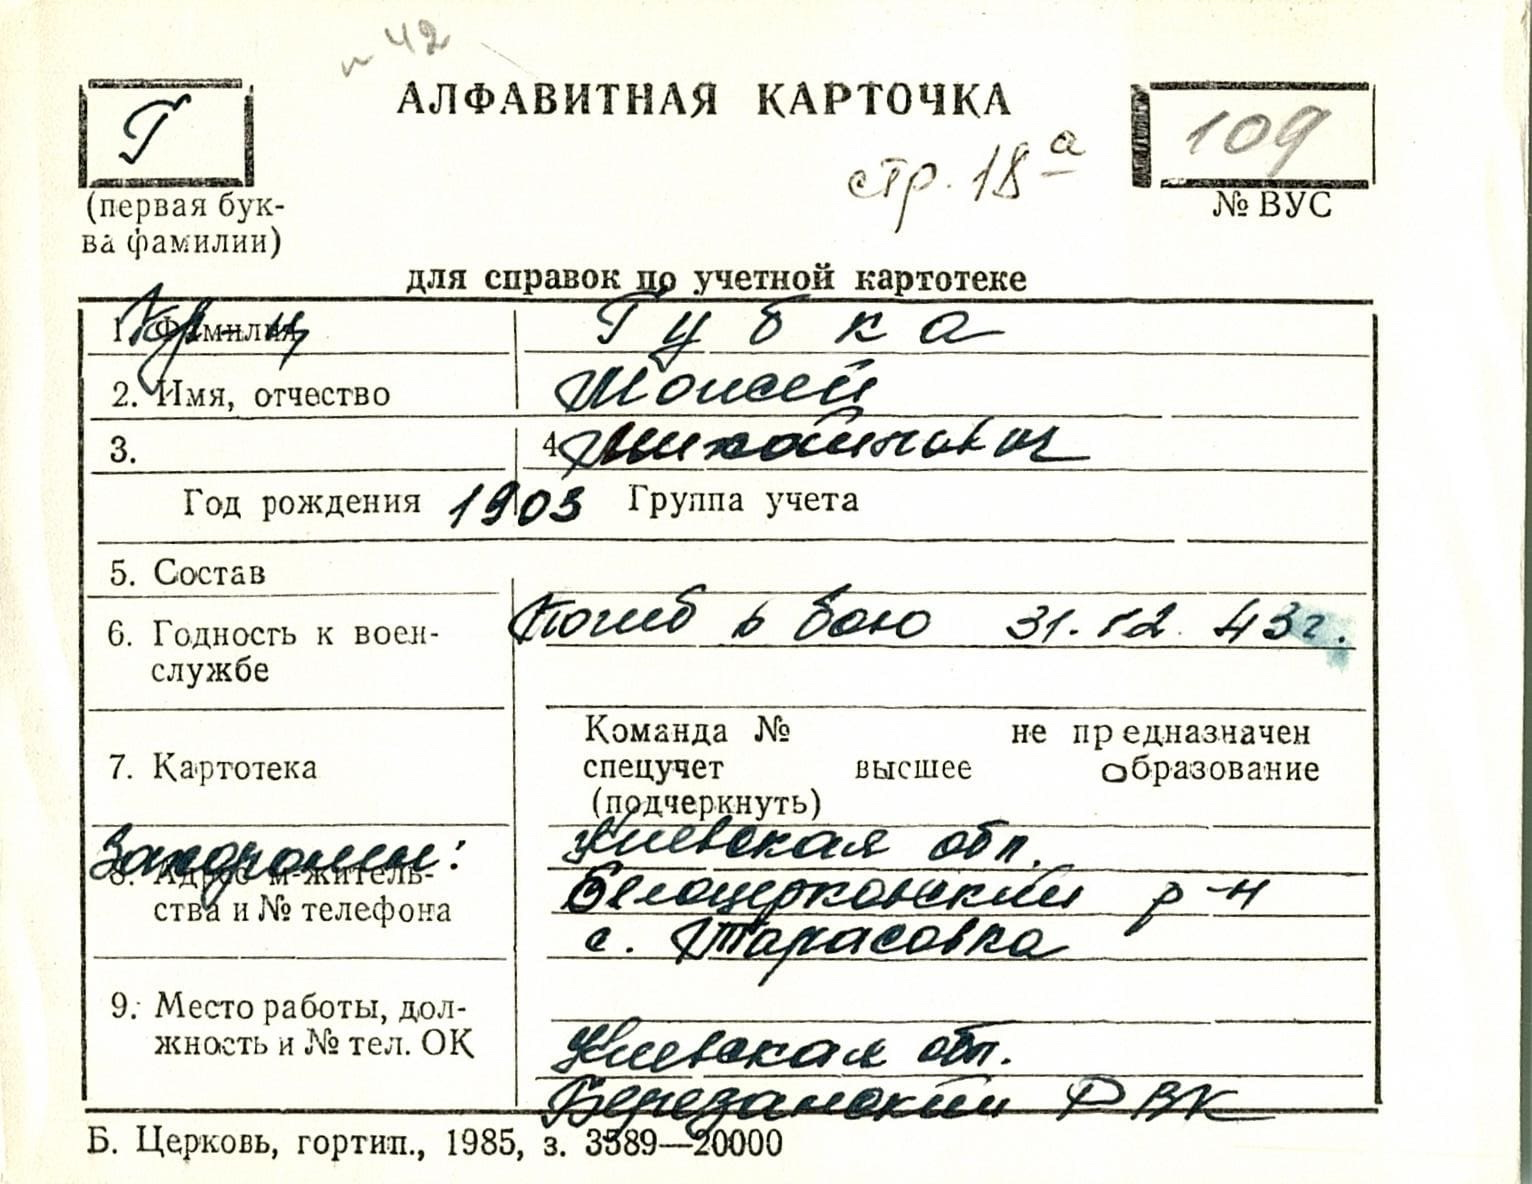 п 42
Г
АЛФАВИТНАЯ КАРТОЧКА
109
стр. 18а
(первая бук-
ва фамилии)
№ ВУС
для справок по учетной картотеке
Кр-ц
1. Фамилия
Губка
2. Имя, отчество
Моисей
3.
4. Михайлович
Год рождения 1903 Группа учета
5. Состав
6. Годность к воен-
службе
Погиб в бою 31.12.43г.
7. Картотека
Команда № не предназначен
спецучет высшее образование
(подчеркнуть)
Захоронен:
8. Адрес м-житель-
ства и № телефона
Киевская обл.
Белоцерковский р-н
с. Тарасовка
9. Место работы, дол-
жность и № тел. ОК
Киевская обл.
Березанский РВК
Б. Церковь, гортип., 1985, з. 3589—20000